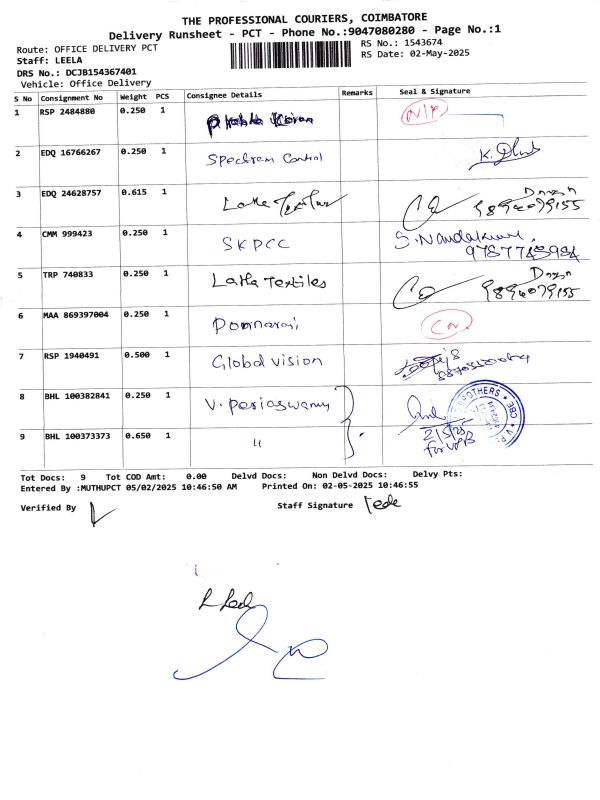 THE PROFESSIONAL COURIERS, COIMBATORE
Delivery Runsheet - PCT - Phone No.:9047080280 - Page No.:1
Route: OFFICE DELIVERY PCT
RS No.: 1543674
Staff: LEELA
RS Date: 02-May-2025
DRS No.: DCJB154367401
Vehicle: Office Delivery
S No Consignment No Weight PCS Consignee Details Remarks Seal & Signature
1 RSP 2484880 0.250 1
2 EDQ 16766267 0.250 1 Spectrum Control
3 EDQ 24628757 0.615 1 Latha Textiles 9894079155
4 CMM 999423 0.250 1 SKPCC S. Nandakumar
5 TRP 740833 0.250 1 Latha Textiles 9894079155
6 MAA 869397004 0.250 1 Ponnaraj
7 RSP 1940491 0.500 1 Global vision
8 BHL 100382841 0.250 1 V. Periaswamy
9 BHL 100373373 0.650 1 " 2/5/25
for VPB
BROTHERS CBE
Tot Docs: 9 Tot COD Amt: 0.00 Delvd Docs: Non Delvd Docs: Delvy Pts:
Entered By :MUTHUPCT 05/02/2025 10:46:50 AM Printed On: 02-05-2025 10:46:55
Verified By Staff Signature